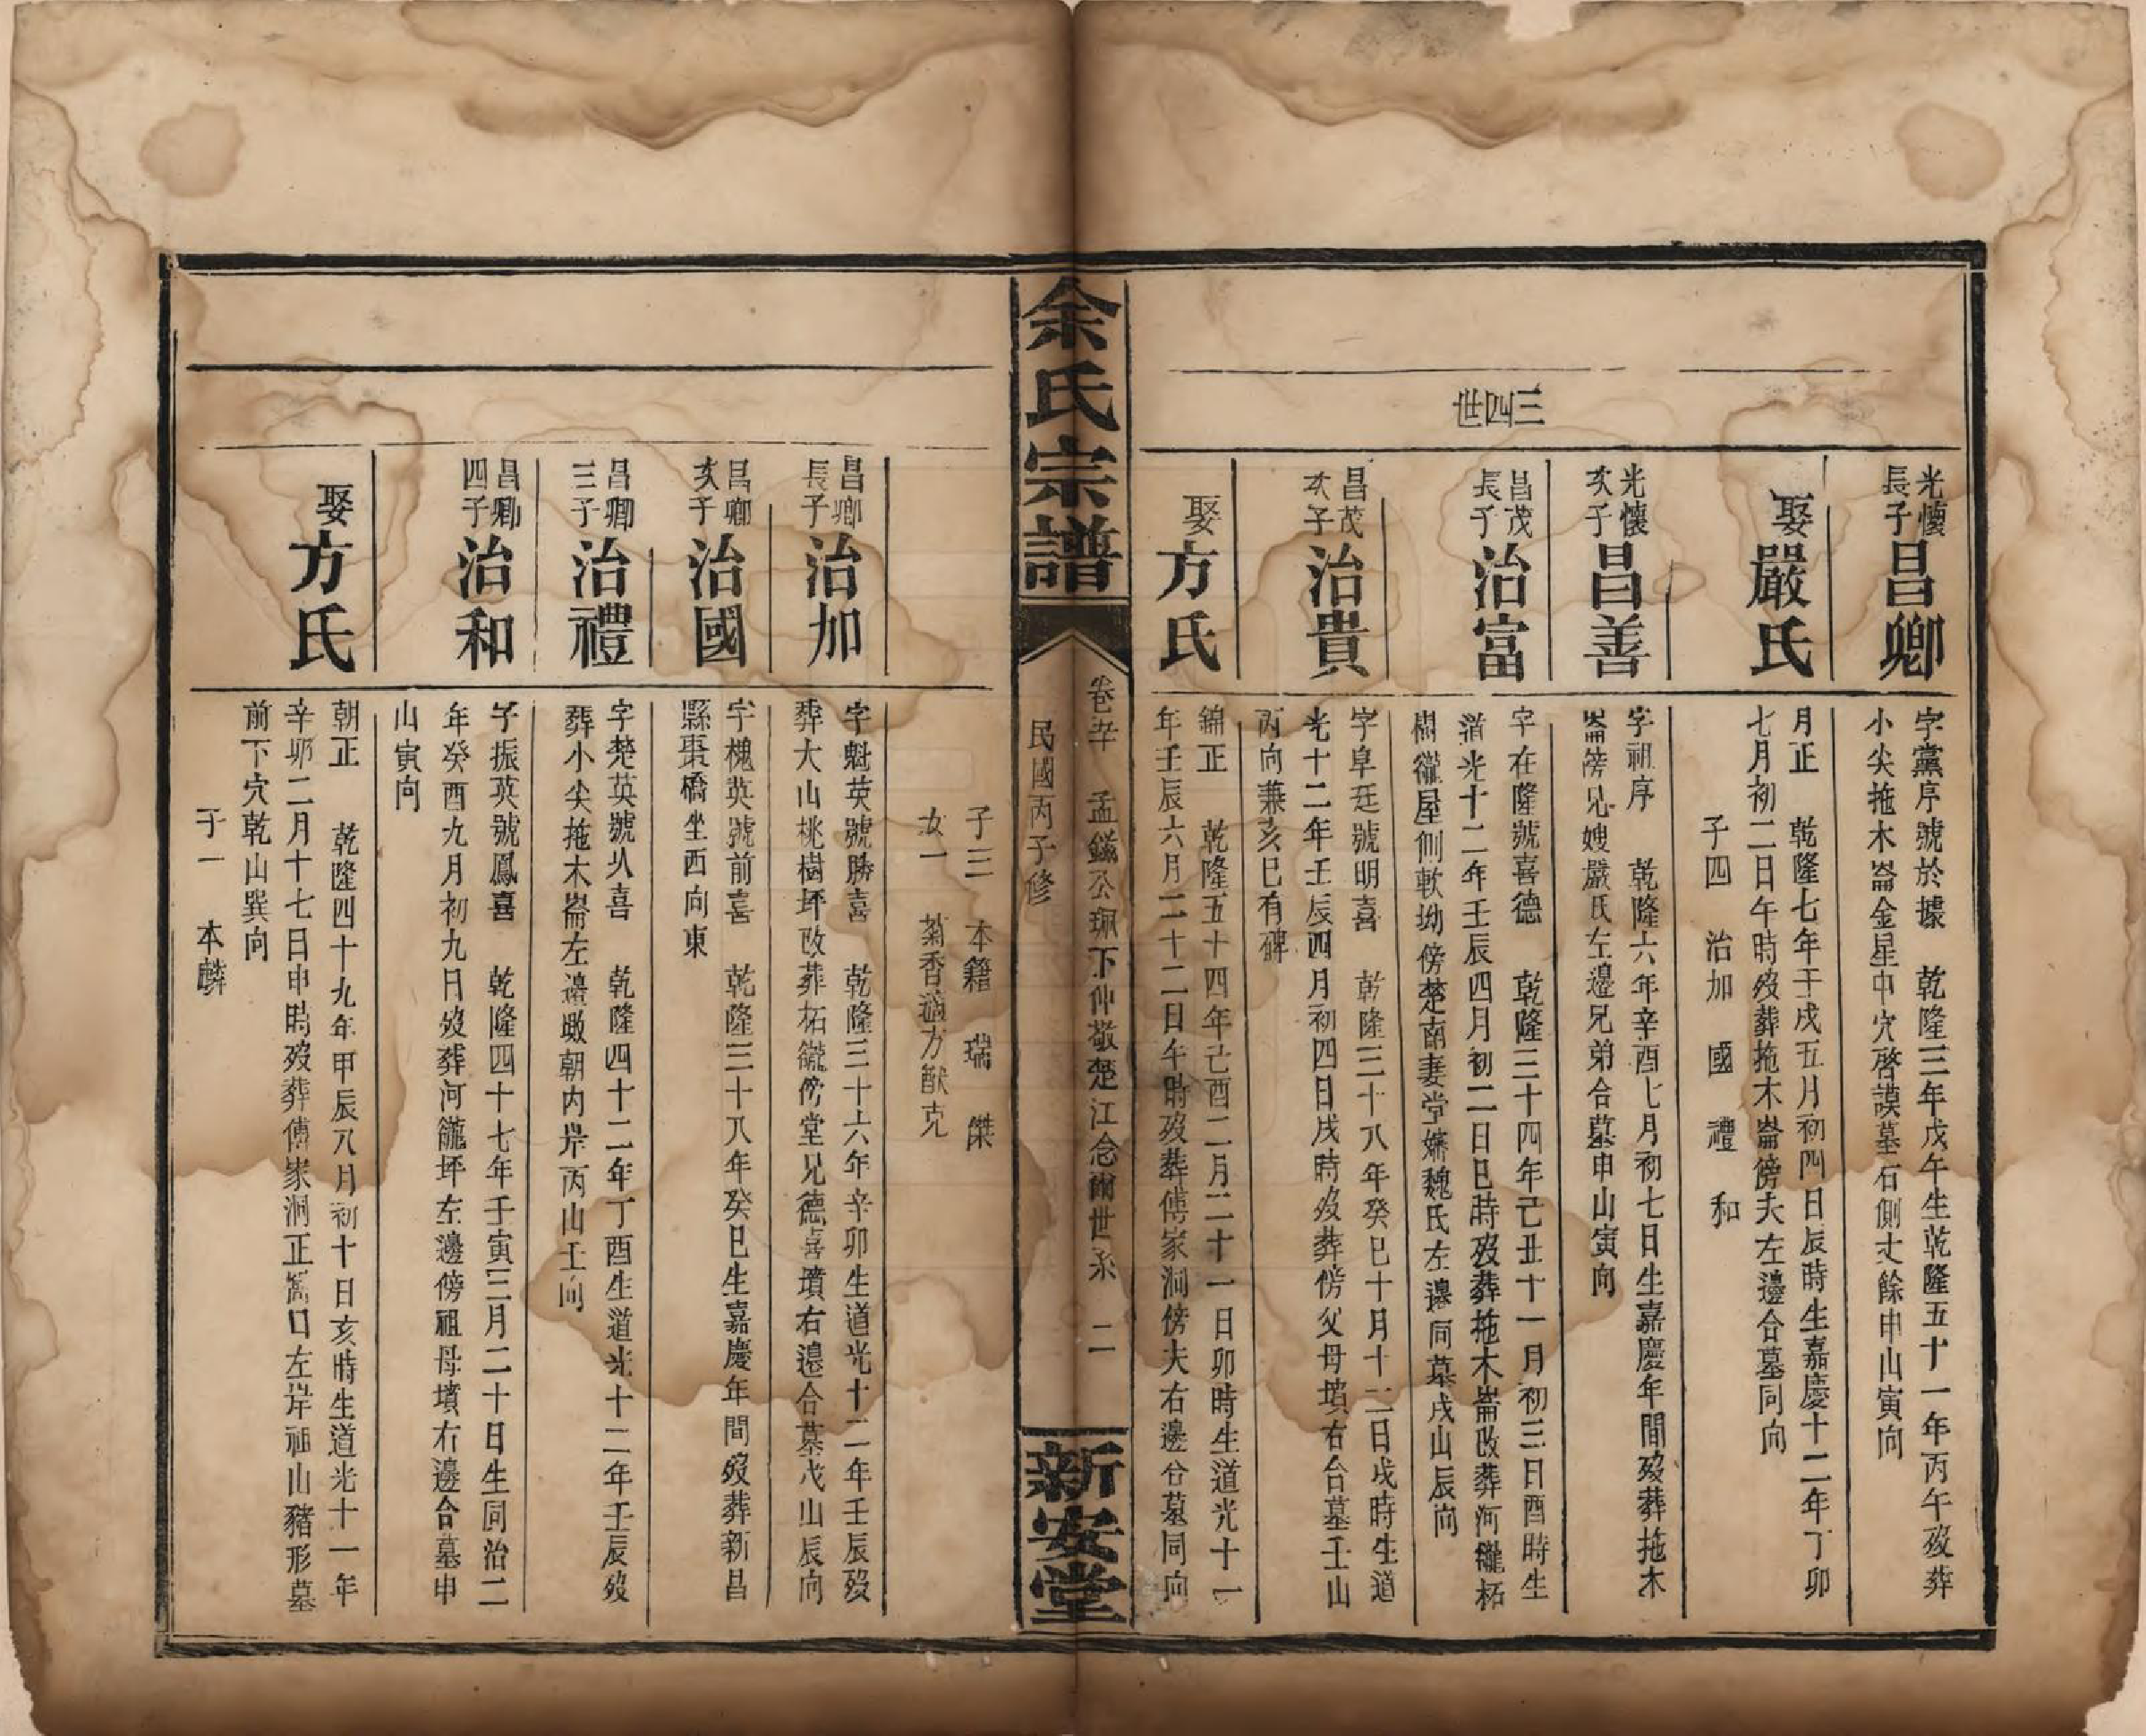 三四世
光懷
長子
昌卿
字黨序號於據 乾隆三年戊午生乾隆五十一年丙午歿葬
小尖拖木崙金星中穴啓謨墓石側丈餘申山寅向
娶
嚴氏
月正 乾隆七年壬戌五月初四日辰時生嘉慶十二年丁卯
七月初二日午時歿葬拖木崙傍夫左邊合墓同向
子四 治加 國 禮 和
光懷
次子
昌善
字祖序 乾隆六年辛酉七月初七日生嘉慶年間歿葬拖木
崙傍兄嫂嚴氏左邊兄弟合墓申山寅向
昌茂
長子
治富
字在隆號喜德 乾隆三十四年己丑十一月初三日酉時生
道光十二年壬辰四月初二日巳時歿葬拖木崙改葬河㘵柘
樹㘵屋側軟坳傍楚南妻堂嬸魏氏左邊同墓戌山辰向
昌茂
次子
治貴
字阜廷號明喜 乾隆三十八年癸巳十月十二日戌時生道
光十二年壬辰四月初四日戌時歿葬傍父母墳右合墓壬山
丙向兼亥巳有碑
娶
方氏
錦正 乾隆五十四年己酉二月二十一日卯時生道光十二
年壬辰六月二十二日午時歿葬傅家洞傍夫右邊合墓同向
余氏宗譜
卷辛 孟鎰公珮下仲敬楚江念爾世系 二
民國丙子修
新安堂
子三 本籍 瑞 傑
女一 菊香適方猷克
昌卿
長子
治加
字魁英號勝喜 乾隆三十六年辛卯生道光十二年壬辰歿
葬大山桃樹坪改葬柘㘵傍堂兄德喜墳右邊合墓戌山辰向
昌卿
次子
治國
字槐英號前喜 乾隆三十八年癸巳生嘉慶年間歿葬新昌
縣棗橋坐西向東
昌卿
三子
治禮
字楚英號火喜 乾隆四十二年丁酉生道光十二年壬辰歿
葬小尖拖木崙左邊墩朝内岸丙山壬向
昌卿
四子
治和
字振英號鳳喜 乾隆四十七年壬寅三月二十日生同治二
年癸酉九月初九日歿葬河㘵坪左邊傍祖母墳右邊合墓申
山寅向
娶
方氏
朝正 乾隆四十九年甲辰八月初十日亥時生道光十一年
辛卯二月十七日申時歿葬傅家洞正窩口左岸祖山豬形墓
前下穴乾山巽向
子一 本麟